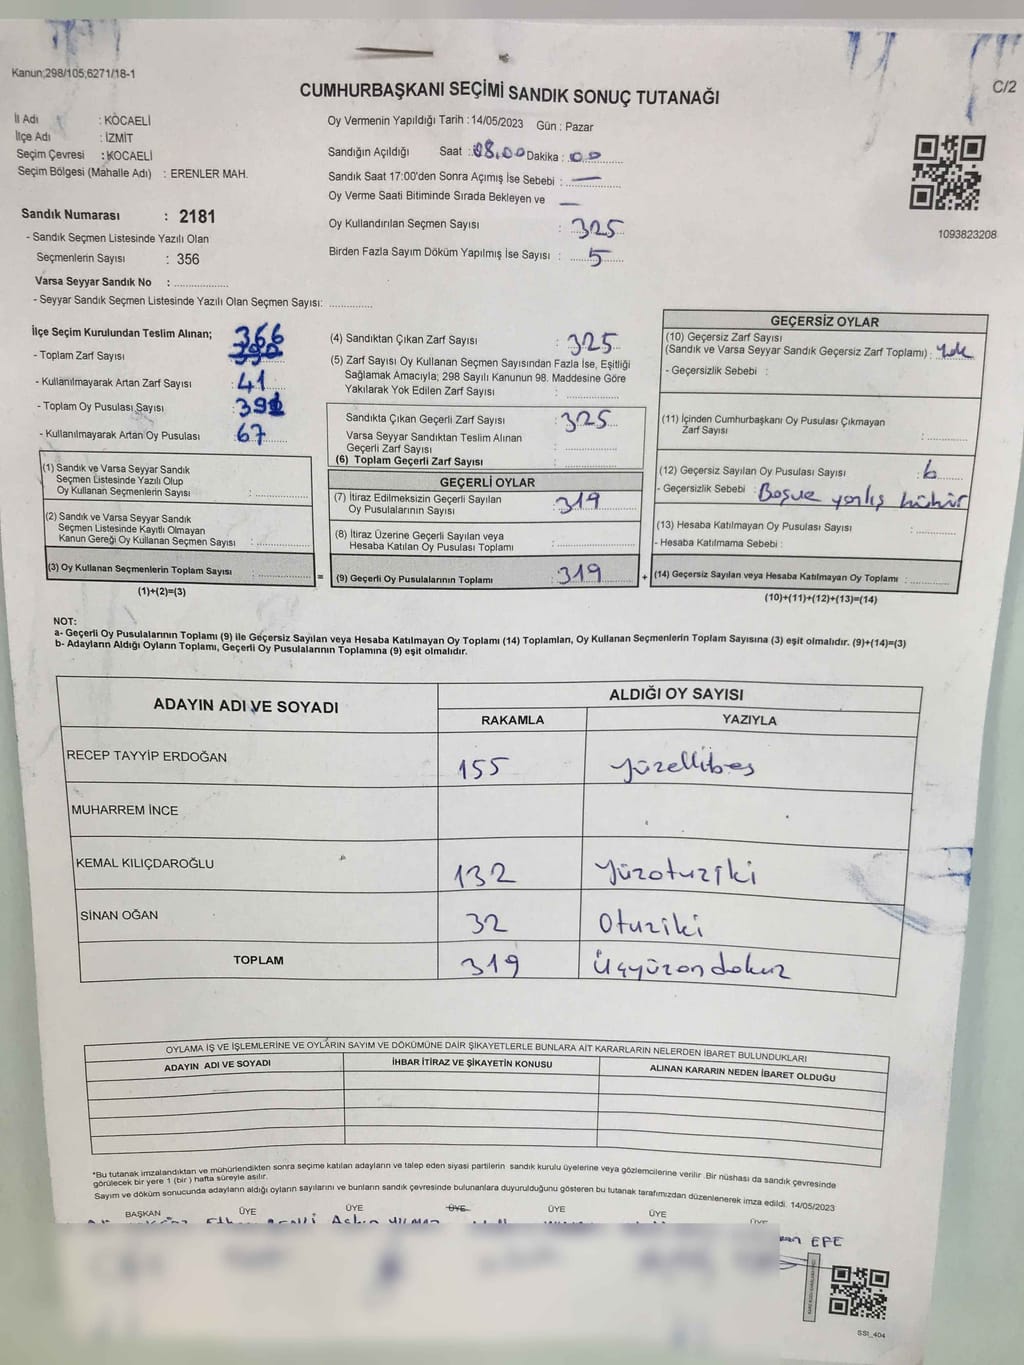 Kanun;298/105;6271/18-1
CUMHURBAŞKANI SEÇİMİ SANDIK SONUÇ TUTANAĞI
C/2
İl Adı : KOCAELİ
İlçe Adı : İZMİT
Seçim Çevresi : KOCAELİ
Seçim Bölgesi (Mahalle Adı) : ERENLER MAH.
Oy Vermenin Yapıldığı Tarih : 14/05/2023 Gün : Pazar
Sandığın Açıldığı Saat : 08.00 Dakika : 00
Sandık Saat 17:00'den Sonra Açımış İse Sebebi : —
Oy Verme Saati Bitiminde Sırada Bekleyen ve —
Oy Kullandırılan Seçmen Sayısı : 325
Birden Fazla Sayım Döküm Yapılmış İse Sayısı : 5
1093823208
Sandık Numarası : 2181
- Sandık Seçmen Listesinde Yazılı Olan
Seçmenlerin Sayısı : 356
Varsa Seyyar Sandık No :
- Seyyar Sandık Seçmen Listesinde Yazılı Olan Seçmen Sayısı:
İlçe Seçim Kurulundan Teslim Alınan; 366
- Toplam Zarf Sayısı
- Kullanılmayarak Artan Zarf Sayısı : 41
- Toplam Oy Pusulası Sayısı
- Kullanılmayarak Artan Oy Pusulası : 67
(1) Sandık ve Varsa Seyyar Sandık
Seçmen Listesinde Yazılı Olup
Oy Kullanan Seçmenlerin Sayısı :
(2) Sandık ve Varsa Seyyar Sandık
Seçmen Listesinde Kayıtlı Olmayan
Kanun Gereği Oy Kullanan Seçmen Sayısı :
(3) Oy Kullanan Seçmenlerin Toplam Sayısı :
(1)+(2)=(3)
(4) Sandıktan Çıkan Zarf Sayısı : 325
(5) Zarf Sayısı Oy Kullanan Seçmen Sayısından Fazla İse, Eşitliği
Sağlamak Amacıyla; 298 Sayılı Kanunun 98. Maddesine Göre
Yakılarak Yok Edilen Zarf Sayısı :
Sandıkta Çıkan Geçerli Zarf Sayısı : 325
Varsa Seyyar Sandıktan Teslim Alınan
Geçerli Zarf Sayısı :
(6) Toplam Geçerli Zarf Sayısı :
GEÇERLİ OYLAR
(7) İtiraz Edilmeksizin Geçerli Sayılan
Oy Pusulalarının Sayısı : 319
(8) İtiraz Üzerine Geçerli Sayılan veya
Hesaba Katılan Oy Pusulası Toplamı :
= (9) Geçerli Oy Pusulalarının Toplamı : 319
GEÇERSİZ OYLAR
(10) Geçersiz Zarf Sayısı
(Sandık ve Varsa Seyyar Sandık Geçersiz Zarf Toplamı) : Yok
- Geçersizlik Sebebi :
(11) İçinden Cumhurbaşkanı Oy Pusulası Çıkmayan
Zarf Sayısı :
(12) Geçersiz Sayılan Oy Pusulası Sayısı : 6
- Geçersizlik Sebebi : Boş ve yanlış mühür
(13) Hesaba Katılmayan Oy Pusulası Sayısı :
- Hesaba Katılmama Sebebi :
+ (14) Geçersiz Sayılan veya Hesaba Katılmayan Oy Toplamı :
(10)+(11)+(12)+(13)=(14)
NOT:
a- Geçerli Oy Pusulalarının Toplamı (9) ile Geçersiz Sayılan veya Hesaba Katılmayan Oy Toplamı (14) Toplamları, Oy Kullanan Seçmenlerin Toplam Sayısına (3) eşit olmalıdır. (9)+(14)=(3)
b- Adayların Aldığı Oyların Toplamı, Geçerli Oy Pusulalarının Toplamına (9) eşit olmalıdır.
ADAYIN ADI VE SOYADI
ALDIĞI OY SAYISI
RAKAMLA YAZIYLA
RECEP TAYYİP ERDOĞAN 155 Yüzellibeş
MUHARREM İNCE
KEMAL KILIÇDAROĞLU 132 Yüzotuziki
SİNAN OĞAN 32 Otuziki
TOPLAM 319 Üçyüzondokuz
OYLAMA İŞ VE İŞLEMLERİNE VE OYLARIN SAYIM VE DÖKÜMÜNE DAİR ŞİKAYETLERLE BUNLARA AİT KARARLARIN NELERDEN İBARET BULUNDUKLARI
ADAYIN ADI VE SOYADI İHBAR İTİRAZ VE ŞİKAYETİN KONUSU ALINAN KARARIN NEDEN İBARET OLDUĞU
*Bu tutanak imzalandıktan ve mühürlendikten sonra seçime katılan adayların ve talep eden siyasi partilerin sandık kurulu üyelerine veya gözlemcilerine verilir .Bir nüshası da sandık çevresinde
görülecek bir yere 1 (bir ) hafta süreyle asılır.
Sayım ve döküm sonucunda adayların aldığı oyların sayılarını ve bunların sandık çevresinde bulunanlara duyurulduğunu gösteren bu tutanak tarafımızdan düzenlenerek imza edildi. 14/05/2023
BAŞKAN ÜYE ÜYE ÜYE ÜYE ÜYE ÜYE
EFE
SSI_404